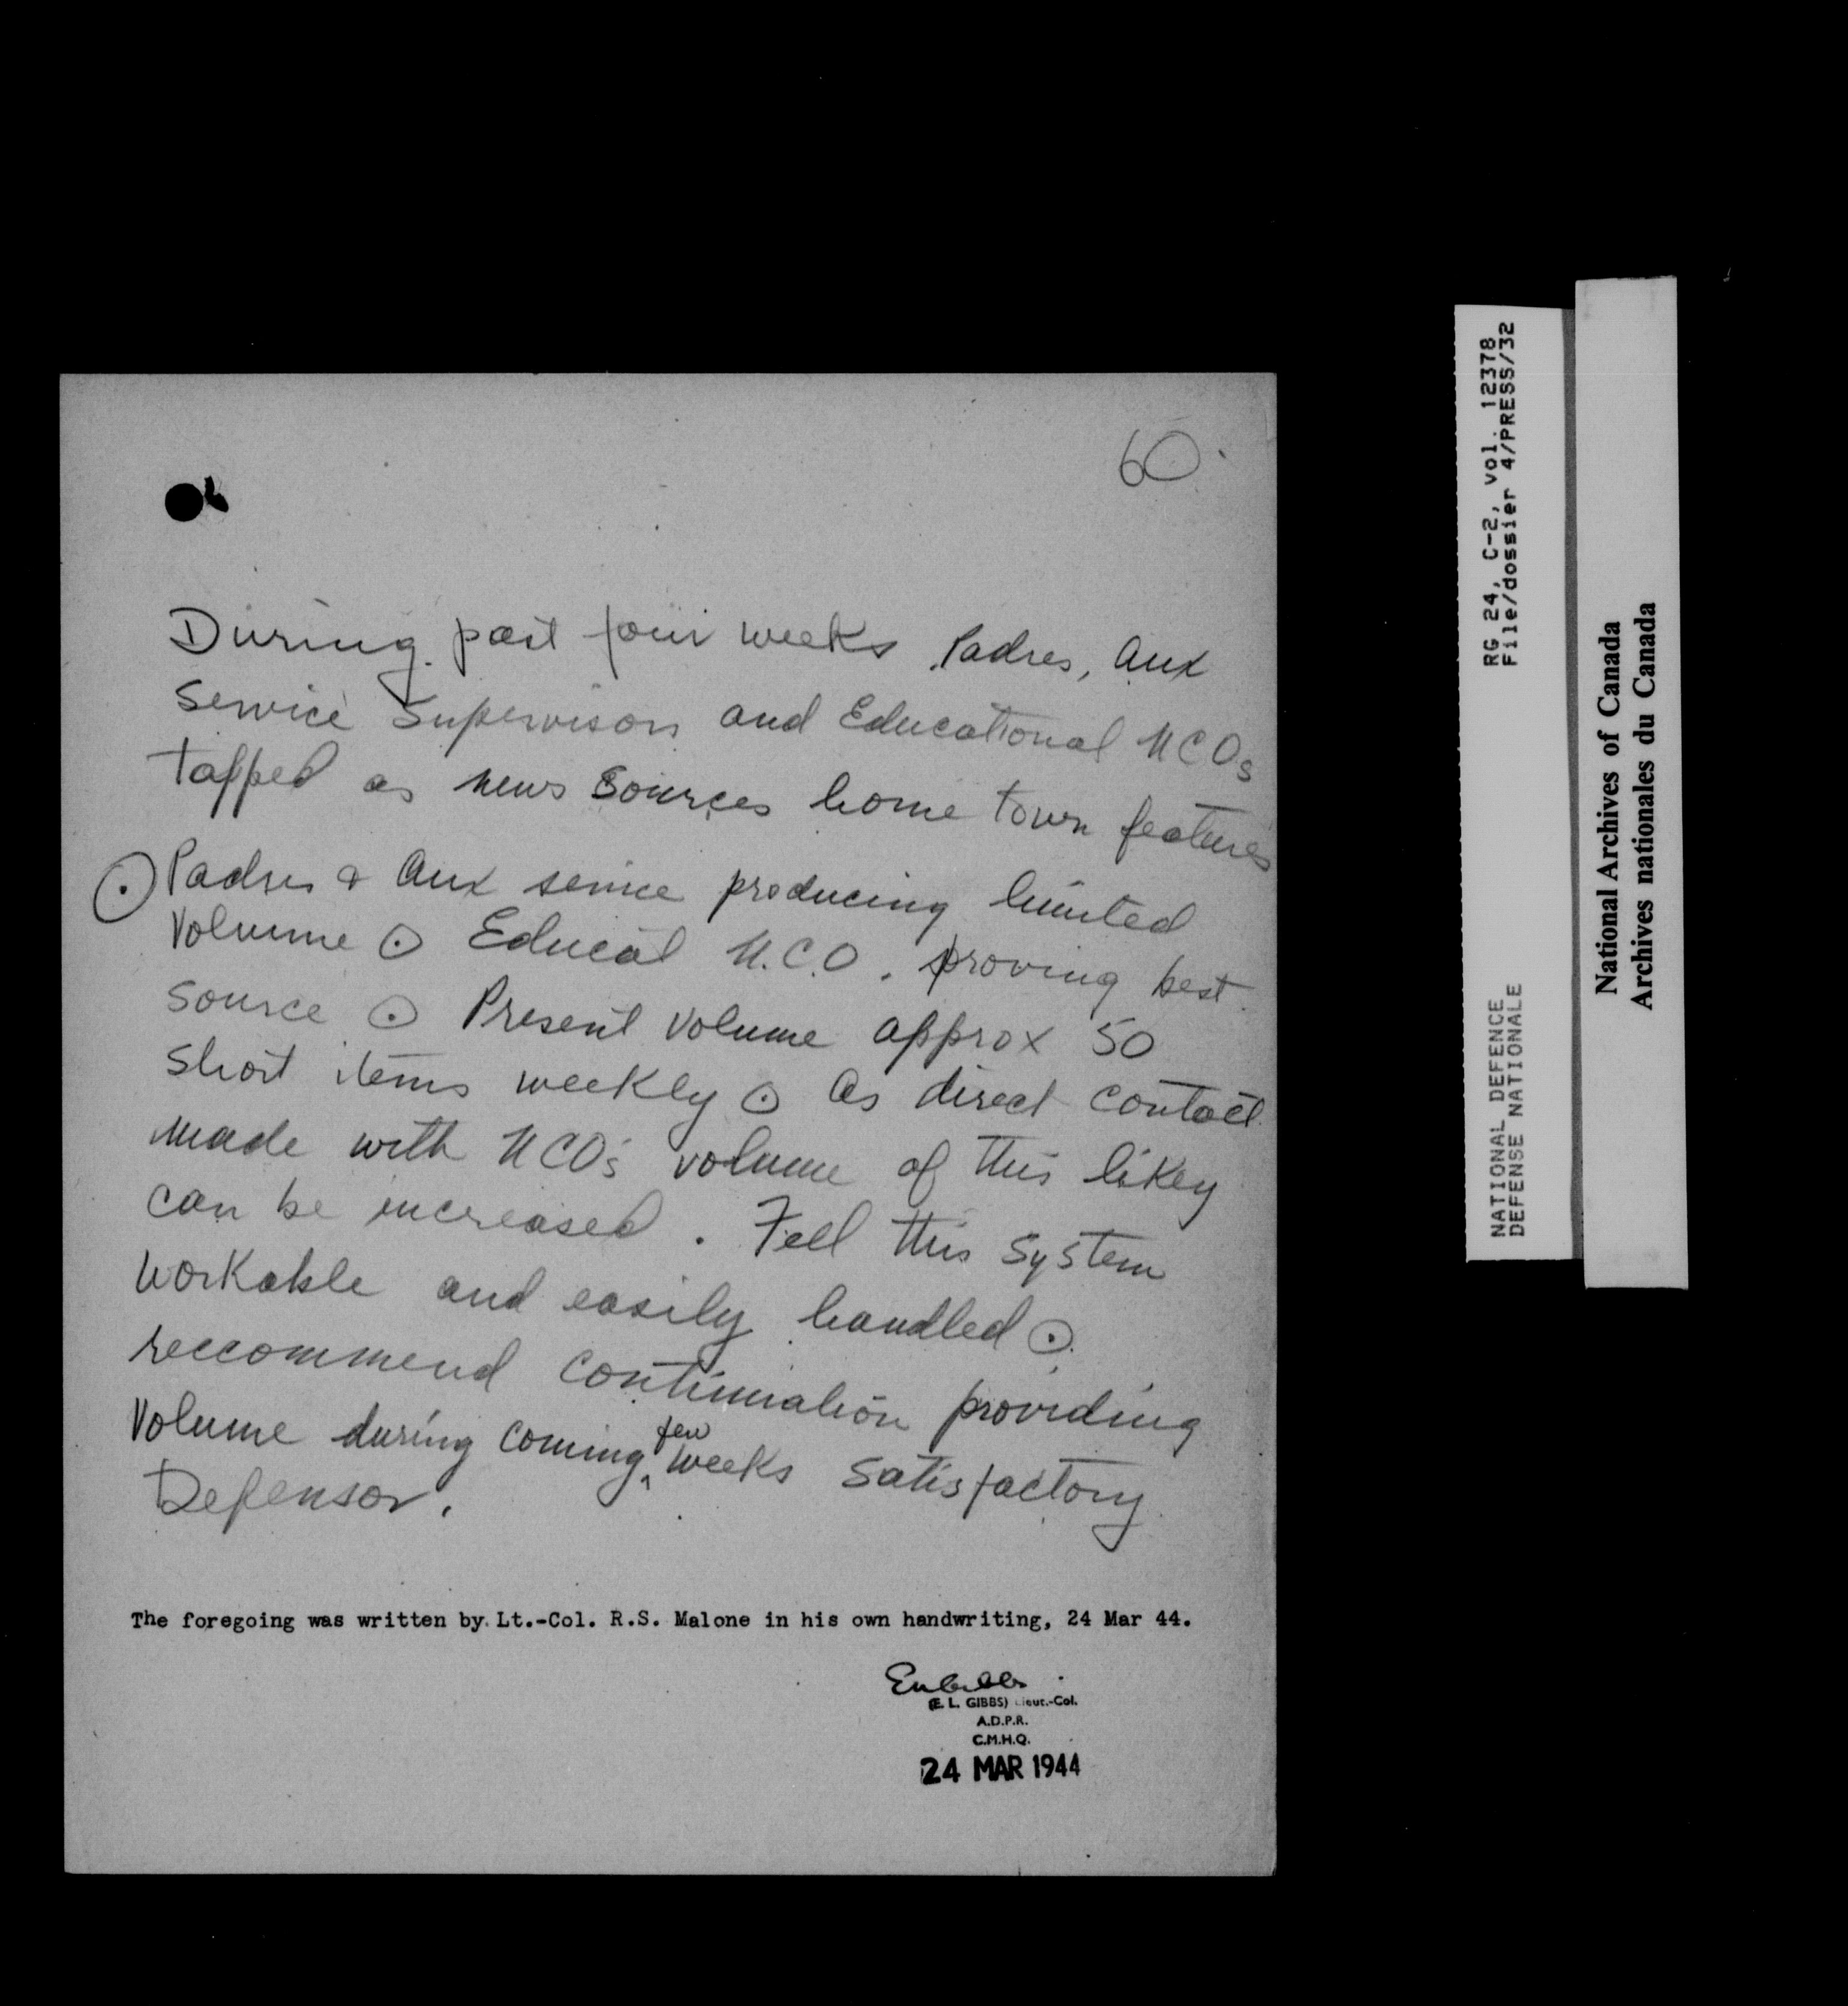 60
During past four weeks Padres, Aux
Service Supervisors and Educational NCOs
tapped as news sources home town features
⊙ Padres & Aux service producing limited
Volume ⊙ Educat N.C.O. proving best
source ⊙ Present volume approx 50
short items weekly ⊙ As direct contact
made with NCO's volume of this likey
can be increased. Feel this system
workable and easily handled ⊙
reccommend continuation providing
volume during coming few weeks satisfactory
Defensor.
The foregoing was written by Lt.-Col. R.S. Malone in his own handwriting, 24 Mar 44.
(E. L. GIBBS) Lieut.-Col.
A.D.P.R.
C.M.H.Q.
24 MAR 1944
RG 24, C-2, vol. 12378
File/dossier 4/PRESS/32
NATIONAL DEFENCE
DEFENSE NATIONALE
National Archives of Canada
Archives nationales du Canada